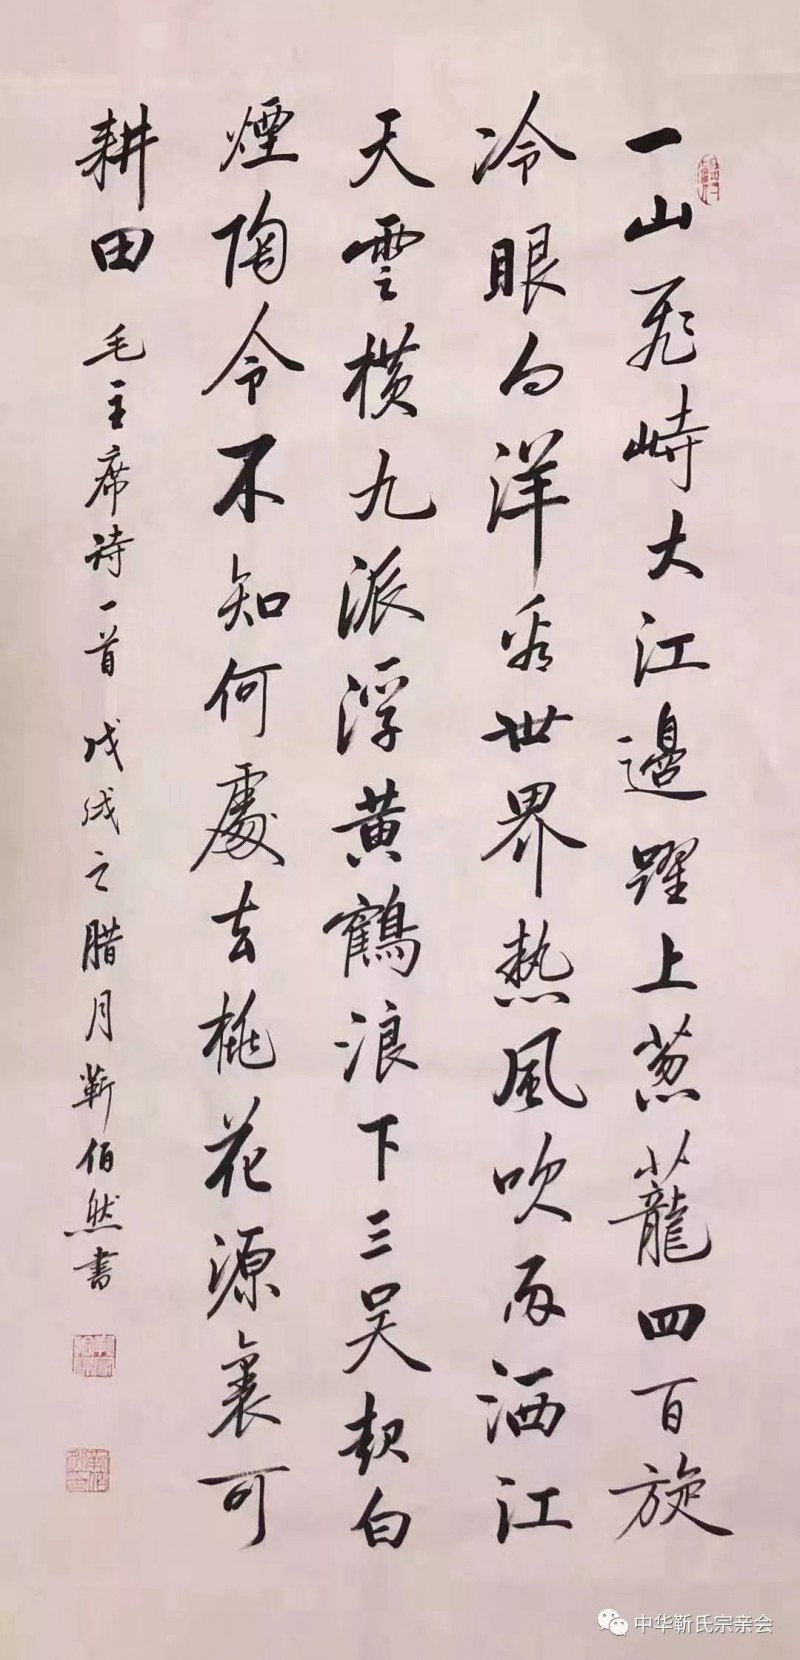 一山飛峙大江邊躍上葱蘢四百旋
冷眼向洋看世界熱風吹雨洒江
天雲橫九派浮黃鶴浪下三吳起白
煙陶令不知何處去桃花源裏可
耕田
毛主席诗一首 戊戌之腊月 靳伯然書
中华靳氏宗亲会